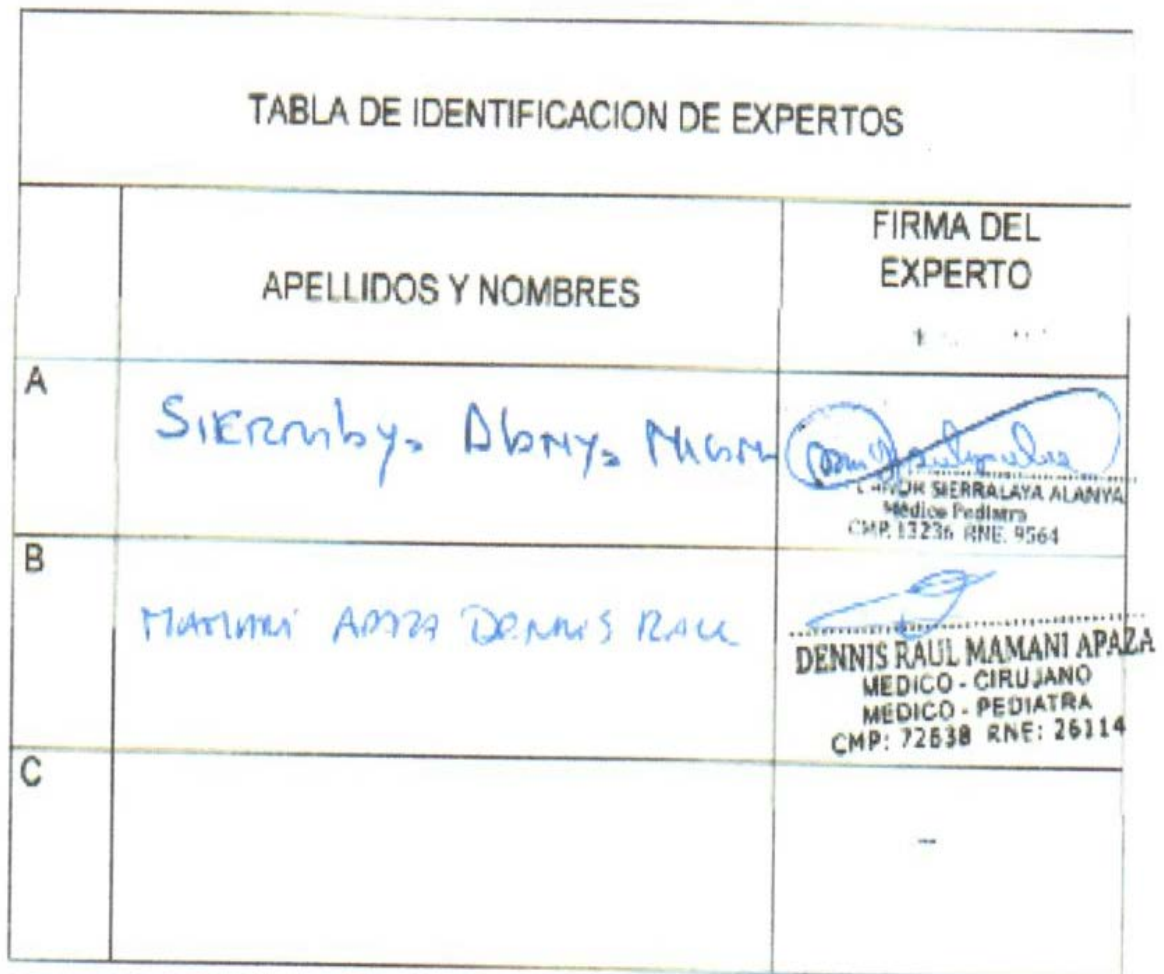 TABLA DE IDENTIFICACION DE EXPERTOS
APELLIDOS Y NOMBRES
FIRMA DEL
EXPERTO
A
SIERRALAYA ALANYA
SIERRALAYA ALANYA
Médico Pediatra
CMP. 13236 RNE. 9564
B
MAMANI APAZA DENNIS RAUL
DENNIS RAUL MAMANI APAZA
MEDICO - CIRUJANO
MEDICO - PEDIATRA
CMP: 72638 RNE: 26114
C